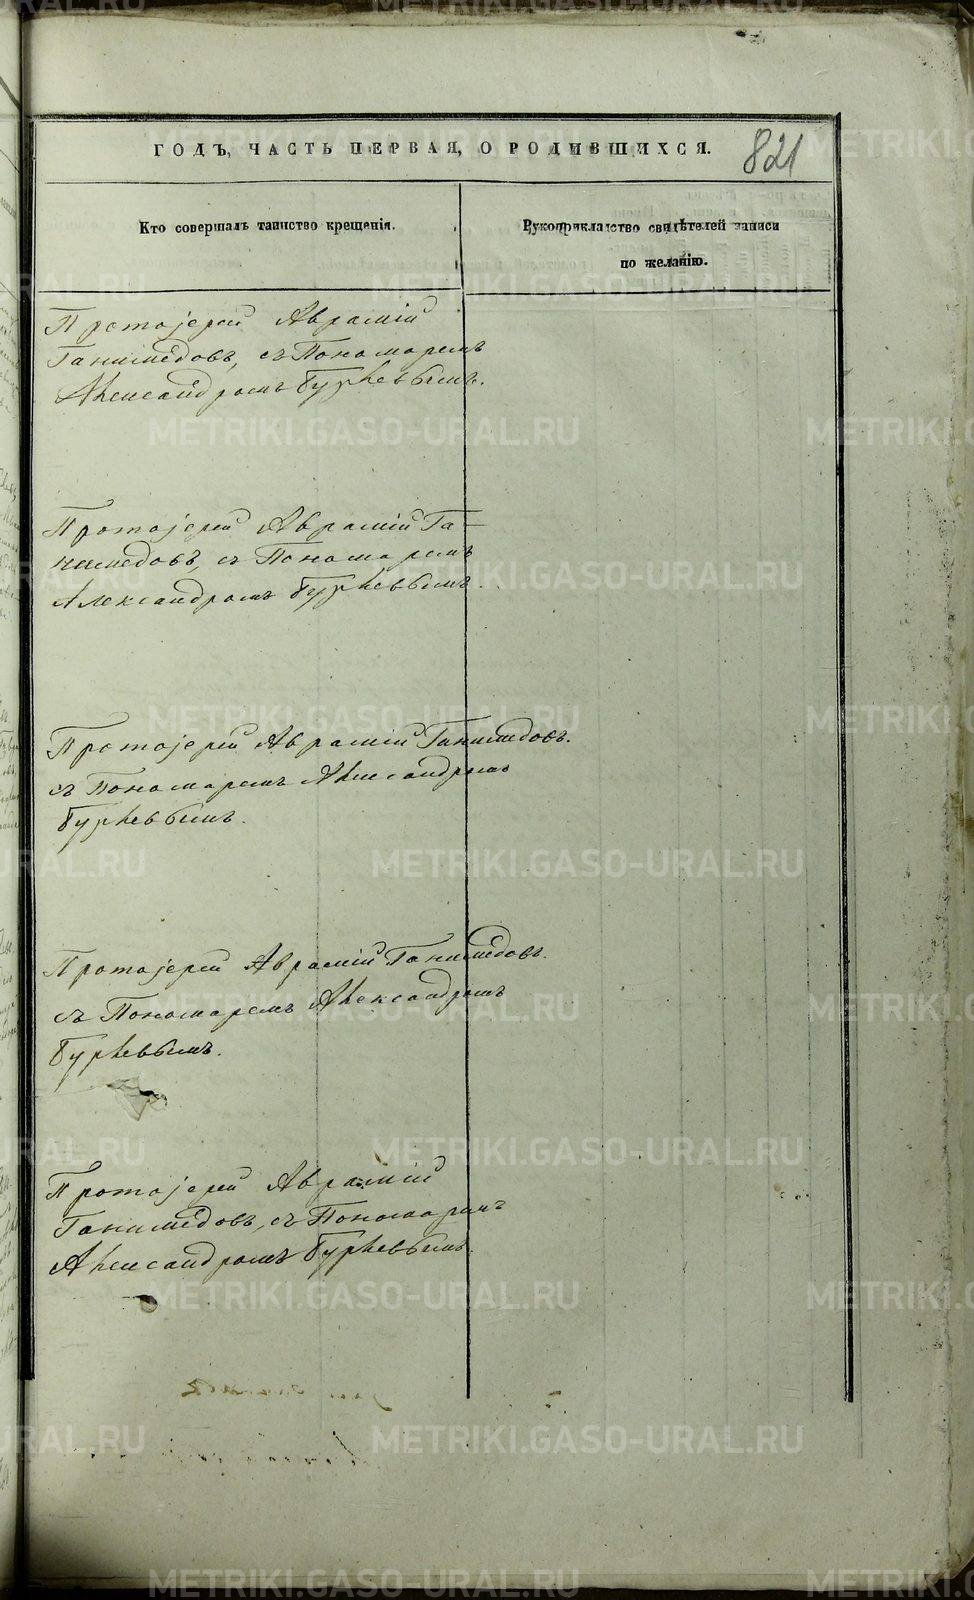 ГОДЪ, ЧАСТЬ ПЕРВАЯ, О РОДИВШИХСЯ.
821
Кто совершалъ таинство крещенія.
Рукоприкладство свидѣтелей записи
по желанію.
Протоіерей Аврамій
Ганимедовъ, съ Пономаремъ
Александромъ Гуркевымъ.
Протоіерей Аврамій Га-
нимедовъ, съ Пономаремъ
Александромъ
Протоіерей Аврамій Ганимедовъ.
съ Пономаремъ Александромъ
Протоіерей Аврамій Ганимедовъ.
съ Пономаремъ Александромъ
Протоіерей Аврамій
Ганимедовъ, съ Пономаремъ
Александромъ
METRIKI.GASO-URAL.RU